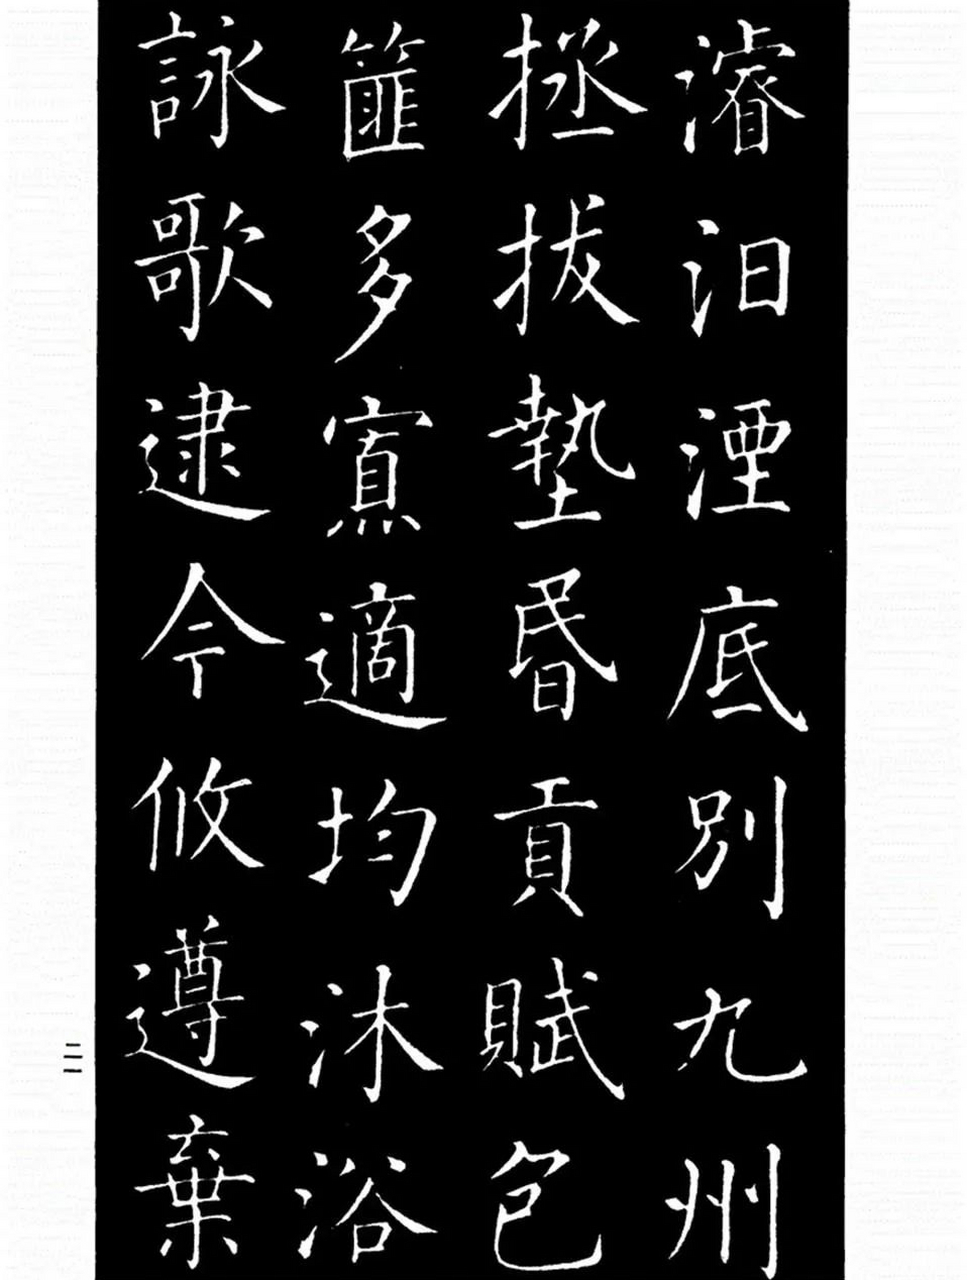 濬汩湮底別九州
拯拔墊昬貢賦包
篚多寡適均沐浴
詠歌逮今攸遵棄
二一